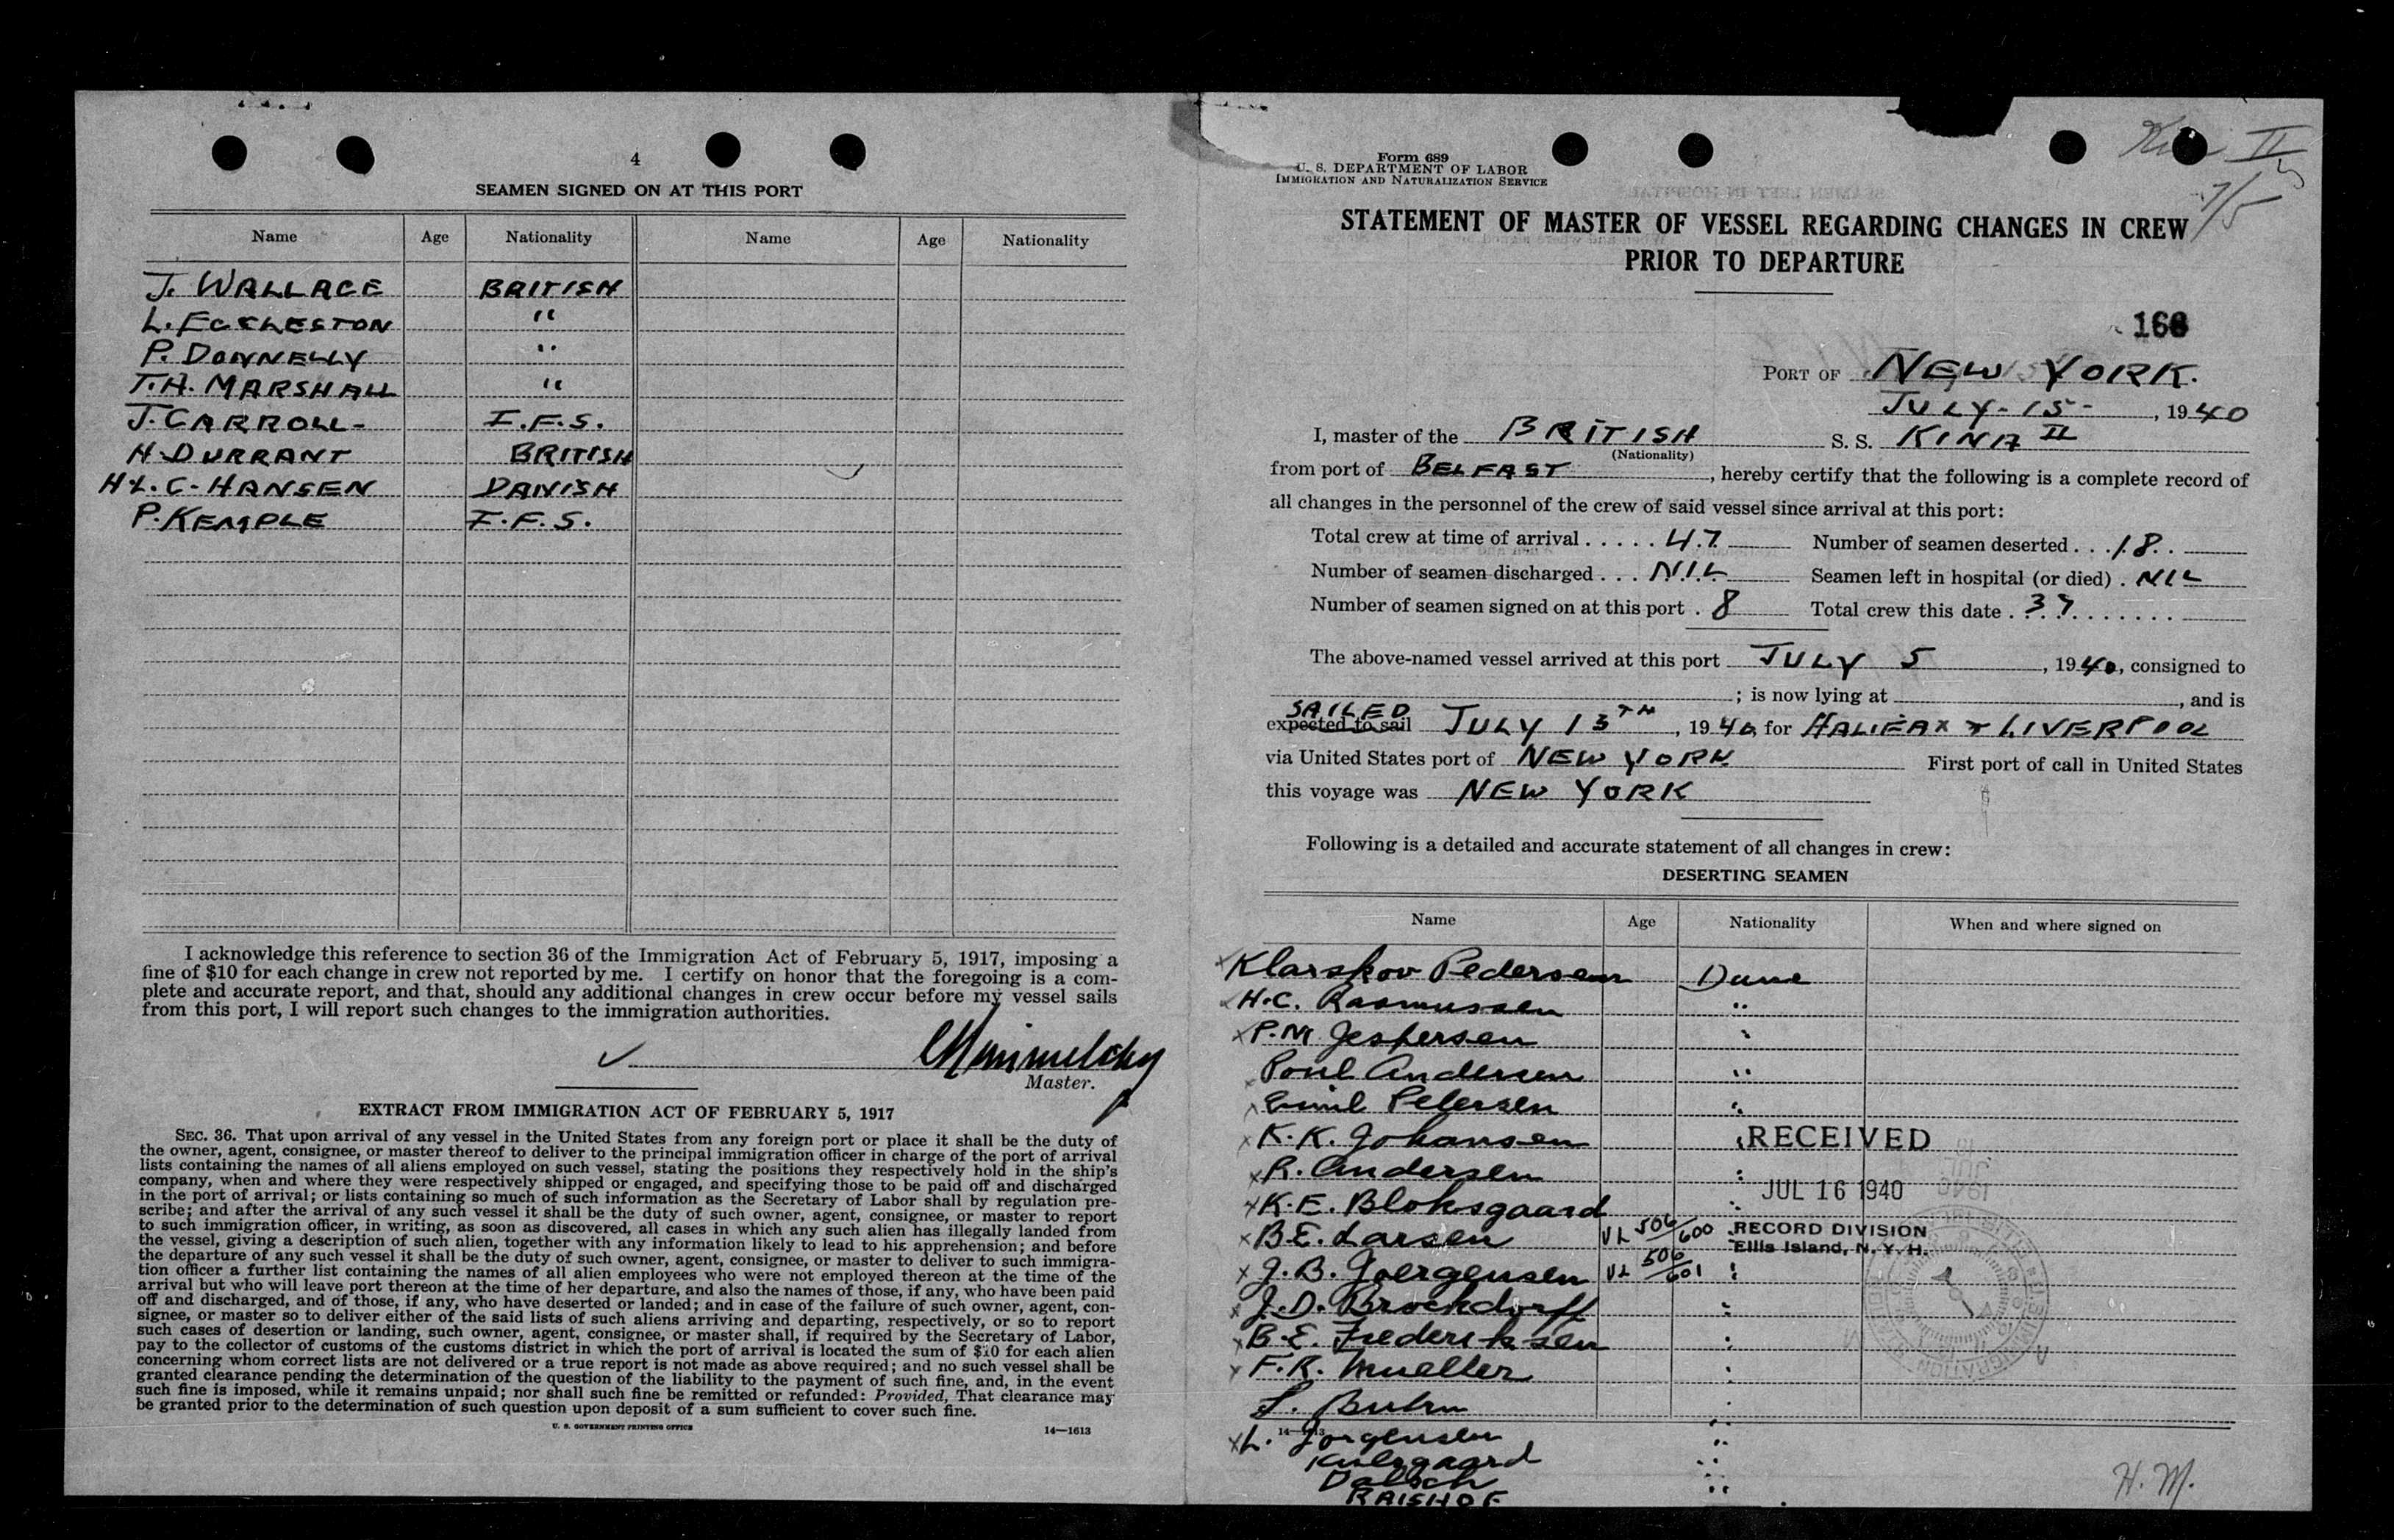 4
SEAMEN SIGNED ON AT THIS PORT
Name Age Nationality Name Age Nationality
J. WALLACE BRITISH
L. ECCLESTON "
P. DONNELLY "
T.H. MARSHALL "
J. CARROLL- I.F.S.
H. DURRANT BRITISH
H.L.C-HANSEN DANISH
P. KEMPLE I.F.S.
I acknowledge this reference to section 36 of the Immigration Act of February 5, 1917, imposing a
fine of $10 for each change in crew not reported by me. I certify on honor that the foregoing is a com-
plete and accurate report, and that, should any additional changes in crew occur before my vessel sails
from this port, I will report such changes to the immigration authorities.
Master.
EXTRACT FROM IMMIGRATION ACT OF FEBRUARY 5, 1917
SEC. 36. That upon arrival of any vessel in the United States from any foreign port or place it shall be the duty of
the owner, agent, consignee, or master thereof to deliver to the principal immigration officer in charge of the port of arrival
lists containing the names of all aliens employed on such vessel, stating the positions they respectively hold in the ship's
company, when and where they were respectively shipped or engaged, and specifying those to be paid off and discharged
in the port of arrival; or lists containing so much of such information as the Secretary of Labor shall by regulation pre-
scribe; and after the arrival of any such vessel it shall be the duty of such owner, agent, consignee, or master to report
to such immigration officer, in writing, as soon as discovered, all cases in which any such alien has illegally landed from
the vessel, giving a description of such alien, together with any information likely to lead to his apprehension; and before
the departure of any such vessel it shall be the duty of such owner, agent, consignee, or master to deliver to such immigra-
tion officer a further list containing the names of all alien employees who were not employed thereon at the time of the
arrival but who will leave port thereon at the time of her departure, and also the names of those, if any, who have been paid
off and discharged, and of those, if any, who have deserted or landed; and in case of the failure of such owner, agent, con-
signee, or master so to deliver either of the said lists of such aliens arriving and departing, respectively, or so to report
such cases of desertion or landing, such owner, agent, consignee, or master shall, if required by the Secretary of Labor,
pay to the collector of customs of the customs district in which the port of arrival is located the sum of $10 for each alien
concerning whom correct lists are not delivered or a true report is not made as above required; and no such vessel shall be
granted clearance pending the determination of the question of the liability to the payment of such fine, and, in the event
such fine is imposed, while it remains unpaid; nor shall such fine be remitted or refunded: Provided, That clearance may
be granted prior to the determination of such question upon deposit of a sum sufficient to cover such fine.
U. S. GOVERNMENT PRINTING OFFICE 14—1613
Form 689
U. S. DEPARTMENT OF LABOR
IMMIGRATION AND NATURALIZATION SERVICE
II
7/5
STATEMENT OF MASTER OF VESSEL REGARDING CHANGES IN CREW
PRIOR TO DEPARTURE
166
PORT OF NEW YORK.
JULY-15-, 1940
I, master of the BRITISH S. S. KINA II
(Nationality)
from port of BELFAST, hereby certify that the following is a complete record of
all changes in the personnel of the crew of said vessel since arrival at this port:
Total crew at time of arrival ..... 47 Number of seamen deserted ... 18
Number of seamen discharged ... NIL Seamen left in hospital (or died) . NIL
Number of seamen signed on at this port . 8 Total crew this date . 37
The above-named vessel arrived at this port JULY 5, 1940, consigned to
; is now lying at , and is
SAILED
expected to sail JULY 13TH, 1940, for HALIFAX + LIVERPOOL
via United States port of NEW YORK First port of call in United States
this voyage was NEW YORK
Following is a detailed and accurate statement of all changes in crew:
DESERTING SEAMEN
Name Age Nationality When and where signed on
x Klarskov Pedersen Dane
x H.C. Rasmussen "
x P.M. Jespersen "
x Poul Andersen "
x Emil Petersen "
x K.K. Johansen "
RECEIVED
x R. Andersen "
JUL 16 1940
x K.E. Bloksgaard "
x B.E. Larsen VL 506/600 "
RECORD DIVISION
Ellis Island, N. Y. H.
x J.B. Joergensen VL 506/601 "
x J.D. Brockdorff "
x B.E. Frederiksen "
x F.K. Mueller "
"
14—1613
x L. Jorgensen "
"
"
RAISHOF "
H.M.